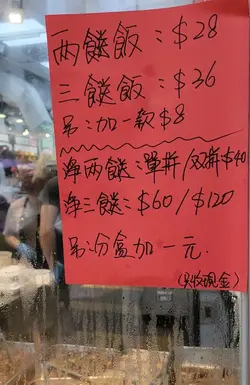 两餸飯:$28
三餸飯:$36
另:加一款$8
淨两餸:單拼/双拼$40
淨三餸:$60/$120
另:分盒加一元.
(只收現金)